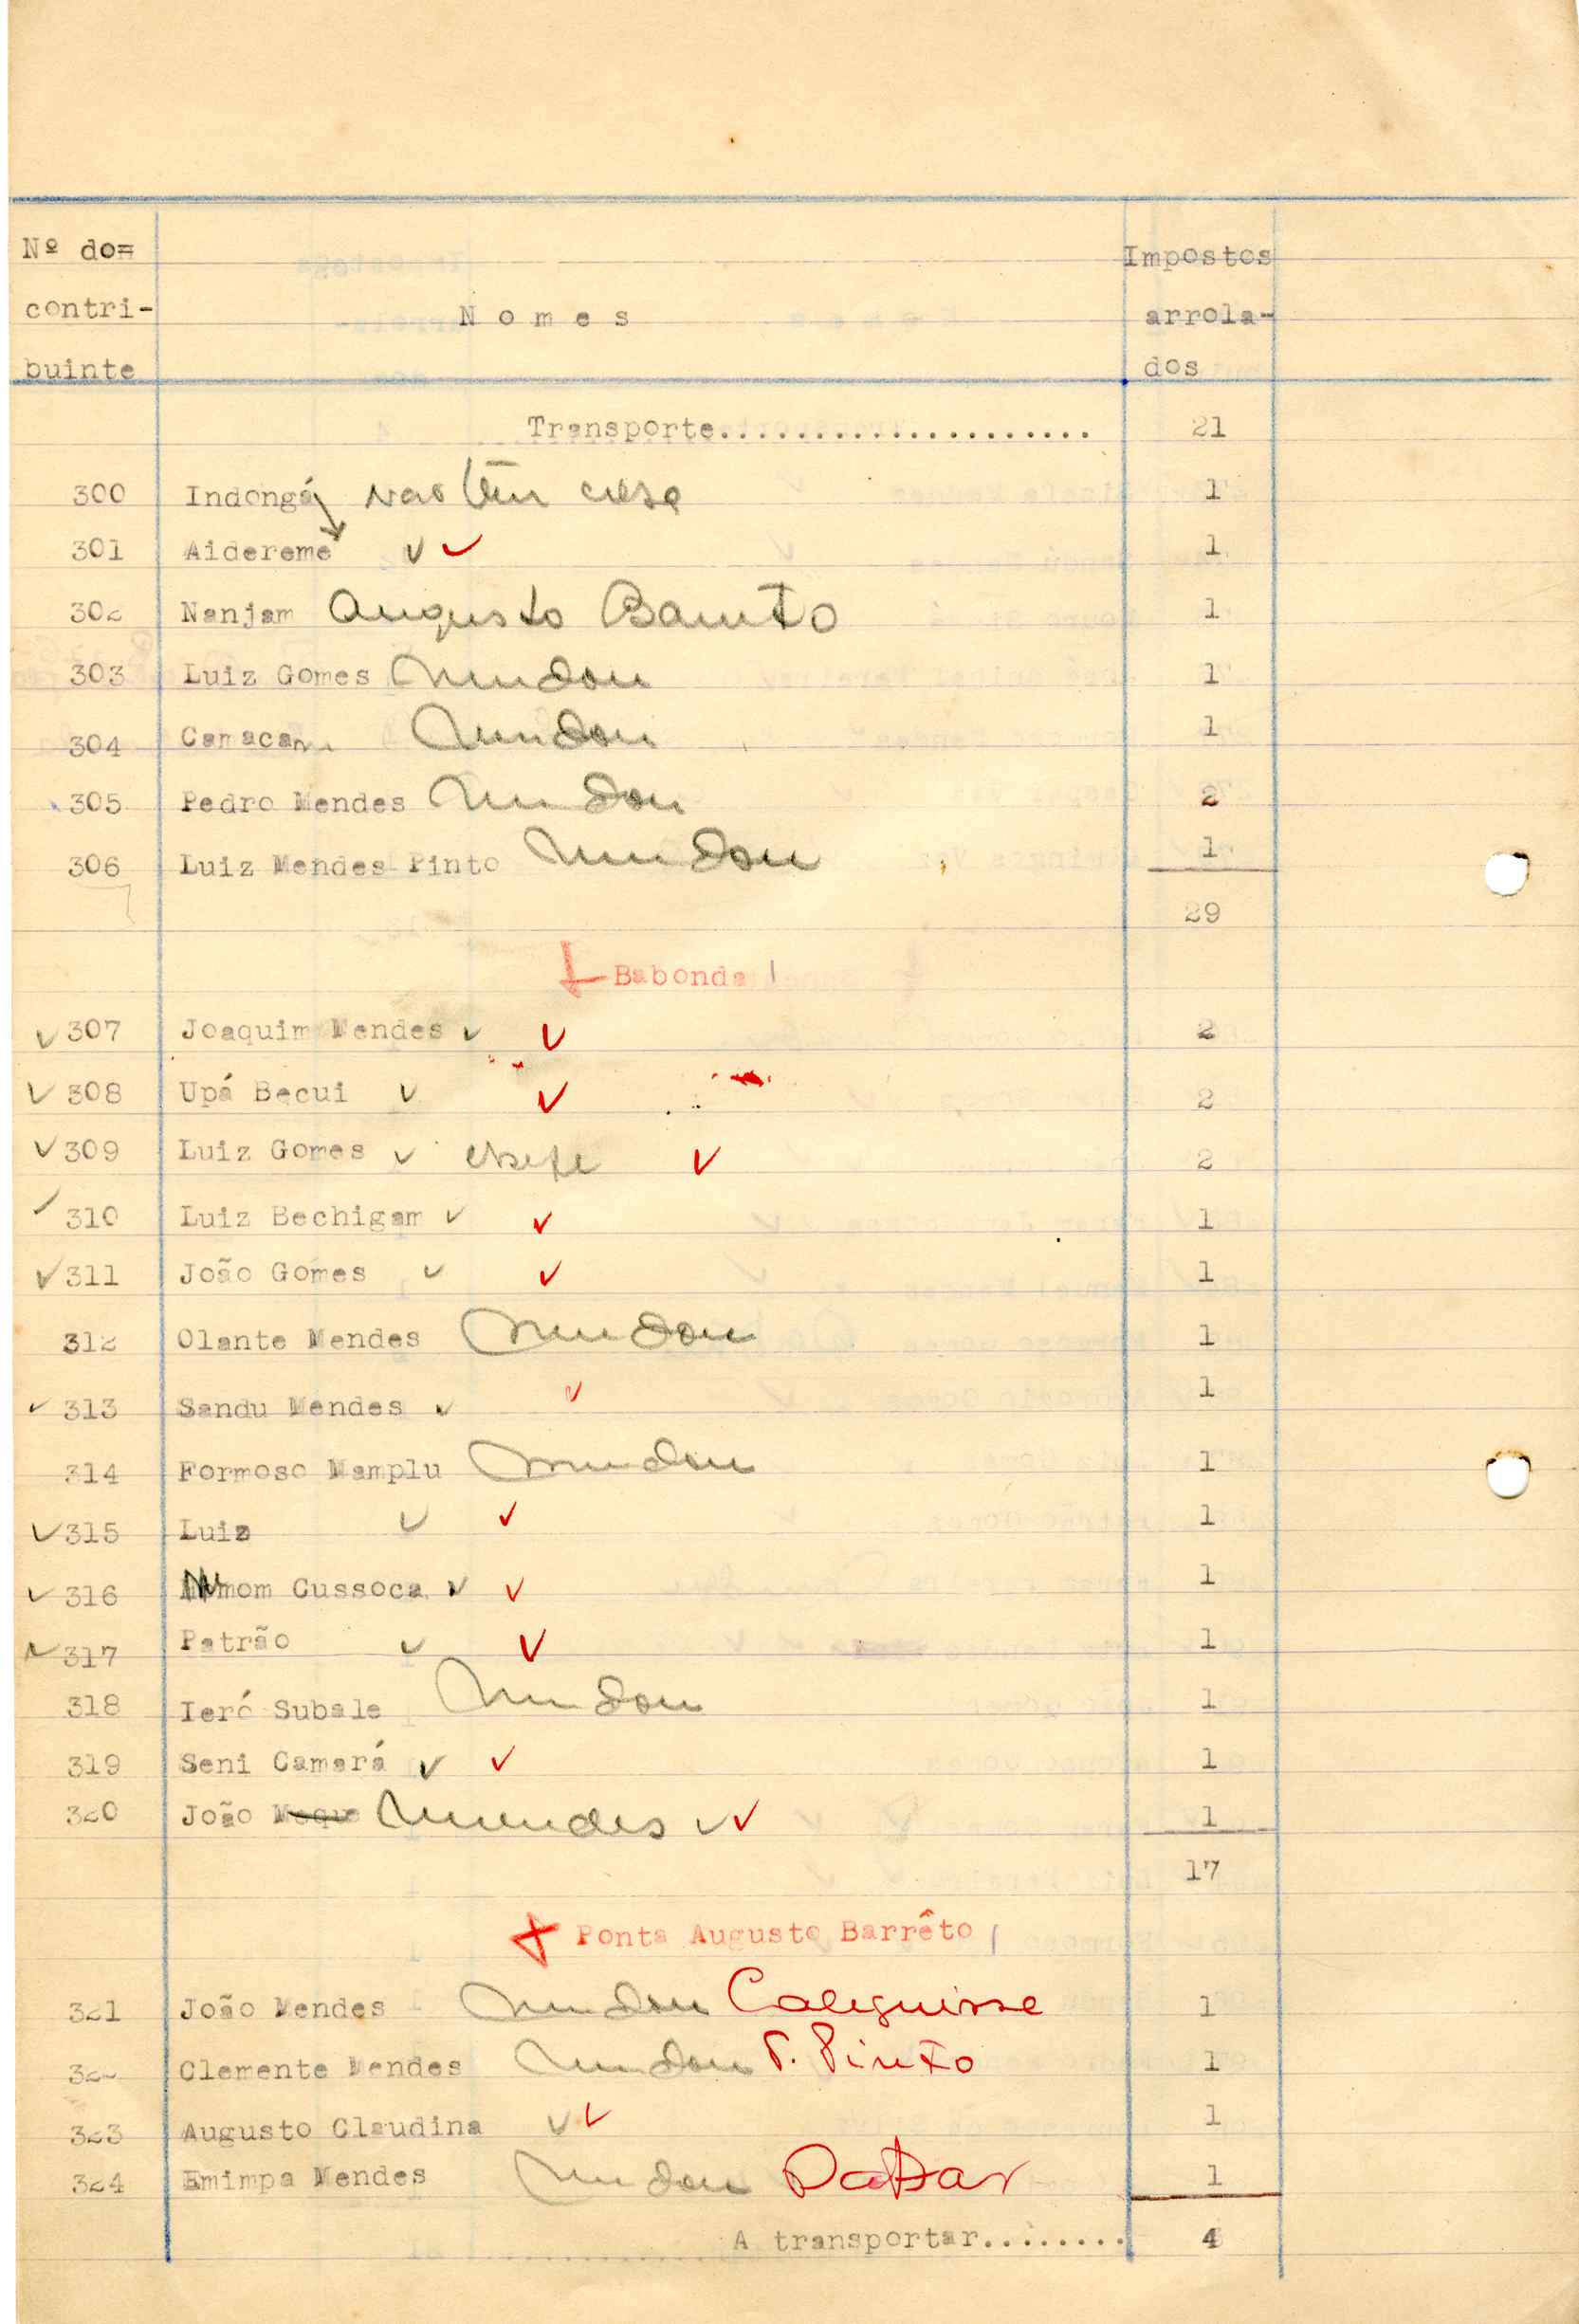 Nº do= Impostos
contri- Nomes arrola-
buinte dos
Transporte..................... 21
300 Indongá não têm casa 1
301 Aidereme 1
302 Nanjam Augusto Barreto 1
303 Luiz Gomes mudou 1
304 Camacam mudou 1
305 Pedro Mendes mudou 2
306 Luiz Mendes Pinto mudou 1
29
Babonda
307 Joaquim Mendes 2
308 Upá Becui 2
309 Luiz Gomes chefe 2
310 Luiz Bechigam 1
311 João Gomes 1
312 Olante Mendes mudou 1
313 Sandu Mendes 1
314 Formoso Mamplu mudou 1
315 Luiz 1
316 mom Cussoca 1
317 Patrão 1
318 Ieró Subale mudou 1
319 Seni Camará 1
320 João Mendes 1
17
Ponta Augusto Barrêto
321 João Mendes mudou Caleguisse 1
322 Clemente Mendes mudou P. Pinto 1
323 Augusto Claudina 1
324 Emimpa Mendes mudou Dakar 1
A transportar........ 4